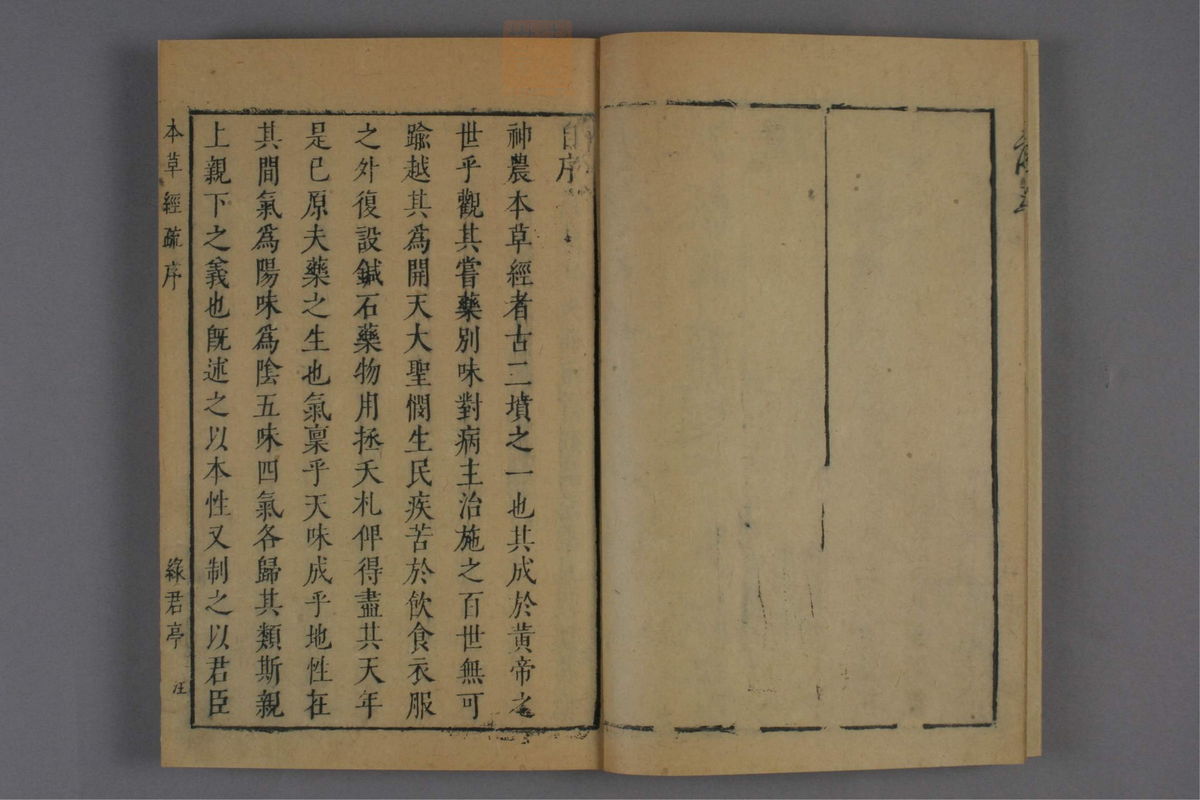 自序
神農本草經者古三墳之一也其成於黄帝之
世乎觀其嘗藥別味對病主治施之百世無可
踰越其爲開天大聖憫生民疾苦於飲食衣服
之外復設鍼石藥物用拯夭札俾得盡其天年
是已原夫藥之生也氣稟乎天味成乎地性在
其間氣爲陽味爲陰五味四氣各歸其類斯親
上親下之義也旣述之以本性又制之以君臣
本草經疏序
綠君亭